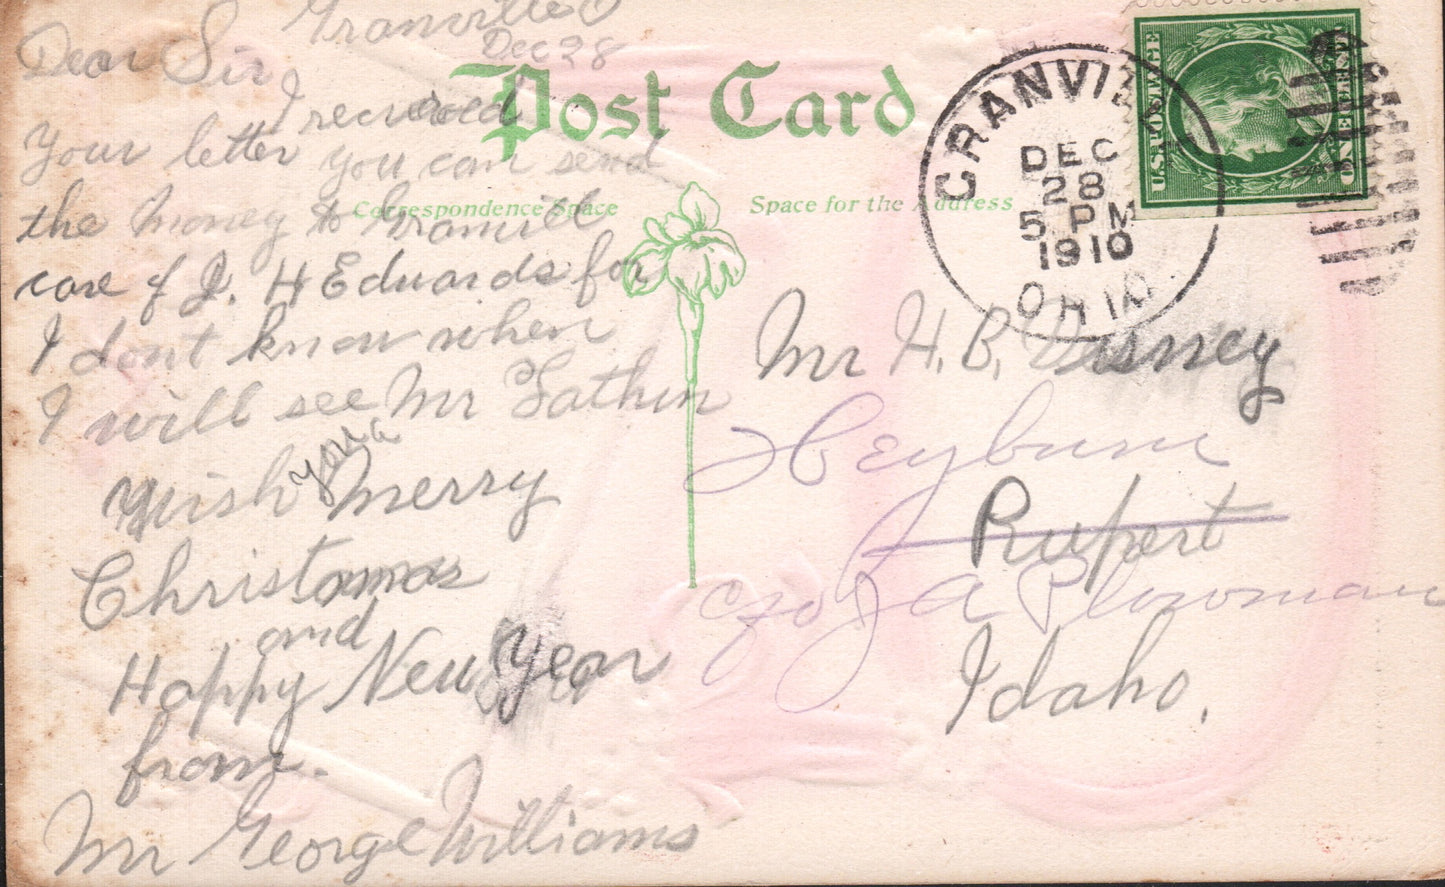 Granville O
Dec 28
Dear Sir
I received
Your letter you can send
the money to Granvill
care of J. H Edwards for
I dont know when
I will see Mr Lathin
Wish you a Merry
Christmas
and
Happy New Year
from.
Mr George Williams
Post Card
Correspondence Space
Space for the Address
GRANVILLE
DEC
28
5 PM
1910
OHIO
U.S. POSTAGE
ONE CENT
Mr H. B. Disney
Heyburn
Rupert
c/o J A Plowman
Idaho.